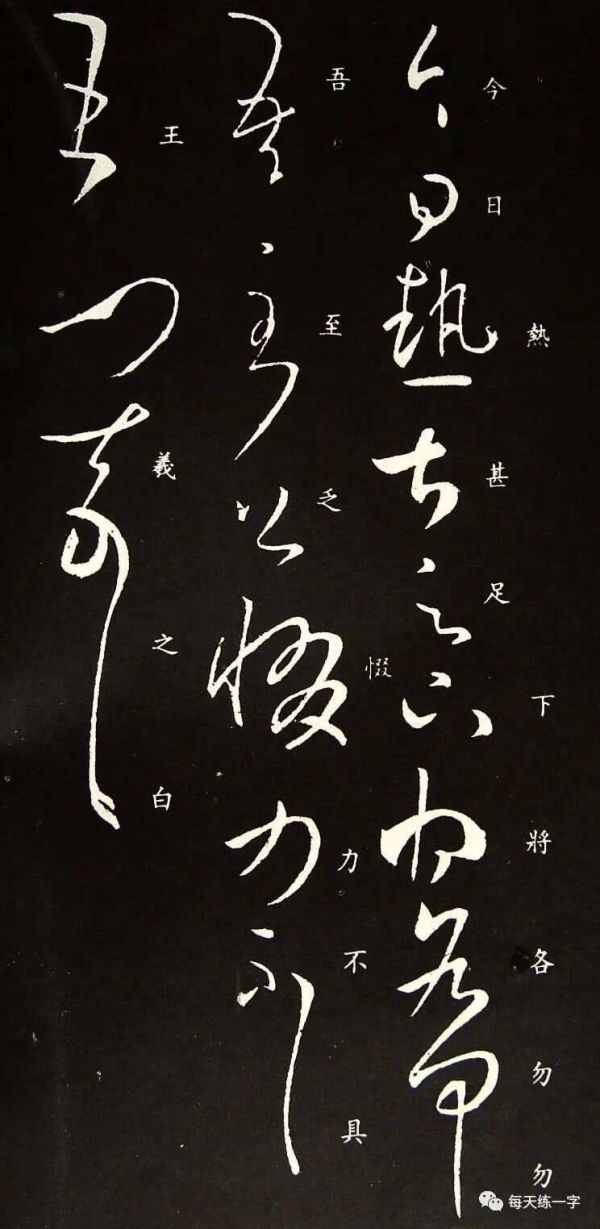 今日熱甚足下將各勿勿
吾至乏惙力不具
王羲之白
每天练一字